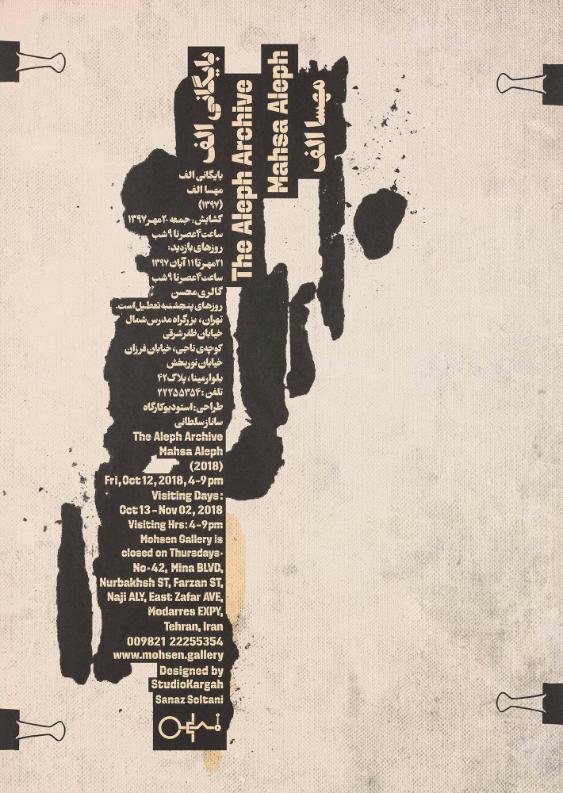 بایگانی الف
The Aleph Archive
Mahsa Aleph
مهسا الف
بایگانی الف
مهسا الف
(۱۳۹۷)
کشایش: جمعه ۲۰مهر۱۳۹۷
ساعت۴عصرتا۹شب
روزهای‌بازدید:
۲۱مهرتا۱۱آبان۱۳۹۷
ساعت۴عصرتا۹شب
گالری‌محسن
روزهای‌پنجشنبه‌تعطیل‌است.
تهران، بزرگراه مدرس‌شمال
خیابان‌ظفرشرقی
کوچه‌ی‌ناجی، خیابان‌فرزان
خیابان‌نوربخش
بلوارمینا، پلاک۴۲
تلفن:۲۲۲۵۵۳۵۴
طراحی:استودیوکارگاه
سانازسلطانی
The Aleph Archive
Mahsa Aleph
(2018)
Fri, Oct 12, 2018, 4-9pm
Visiting Days:
Oct 13 - Nov 02, 2018
Visiting Hrs: 4-9pm
Mohsen Gallery is
closed on Thursdays.
No.42, Mina BLVD,
Nurbakhsh ST, Farzan ST,
Naji ALY, East Zafar AVE,
Modarres EXPY,
Tehran, Iran
009821 22255354
www.mohsen.gallery
Designed by
StudioKargah
Sanaz Soltani